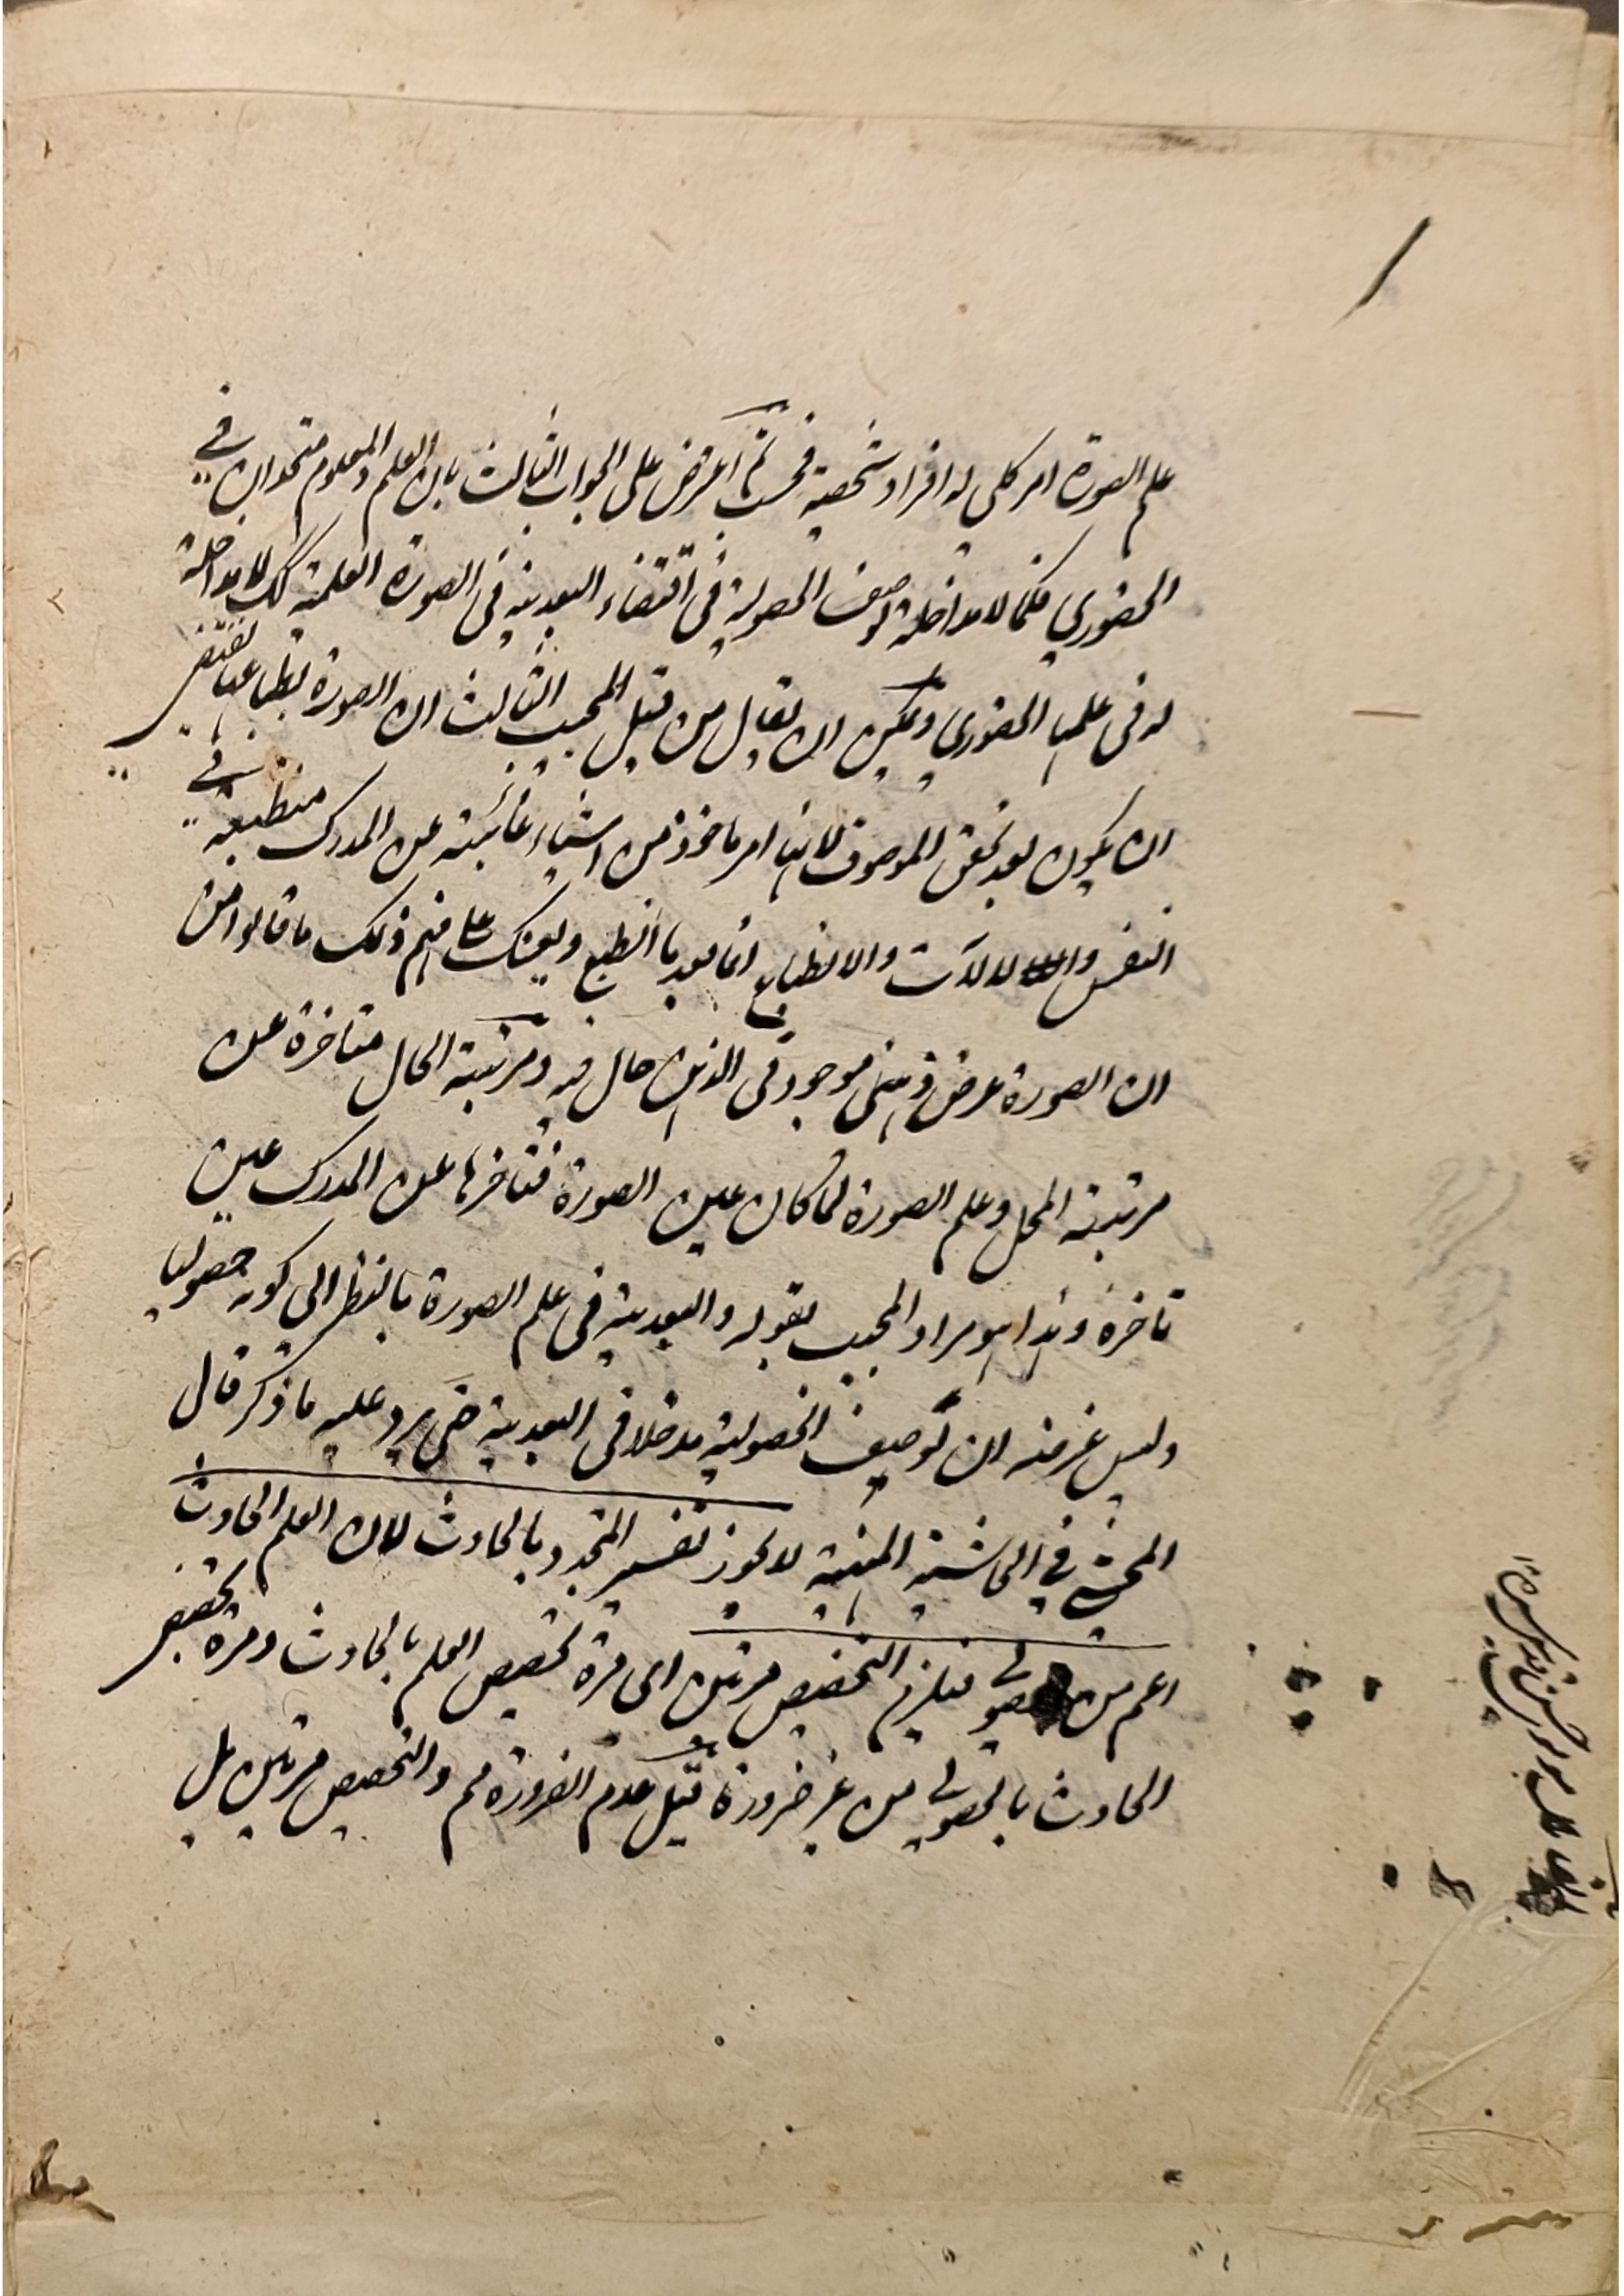 علم الصورة امر كلي له افراد شخصية فحسب ثم اعترض على الجواب الثالث بان العلم والمعلوم متحدان في
الحضوري فكما لا مداخلة لوصف الحصولية في اقتضاء البعدية في الصورة العلمية كك لا مداخلة
له في علمها الحضوري ويمكن ان يقال من قبل المجيب الثالث ان الصورة بطباعها تقتضي
ان يكون بعد تحقق الموصوف لانها امر ماخوذ من اشياء غائبة عن المدرك منطبعة في
النفس والالات والانطباع انما بعد ما انطبع ويعينك على فهم ذلك ما قالوا من
ان الصورة عرض ذهني موجود في الذهن حال فيه ومرتبة الحال متاخرة عن
مرتبة المحل وعلم الصورة لما كان عين الصورة فتاخرها عن المدرك عين
تاخره وهذا هو مراد المجيب بقوله والبعدية في علم الصورة بالنظر الى كونه حصوليا
وليس غرضه ان لوصف الحصولية مدخلا في البعدية حتى يرد عليه ما ذكر قال
المحشي في الحاشية المنهية لا يجوز تفسير المتجدد بالحادث لان العلم الحادث
اعم من حصولي فيلزم التخصيص مرتين اى مرة تخصيص العلم بالحادث ومرة تخصيص
الحادث بالحصولي من غير ضرورة قيل عدم الضرورة مم والتخصيص مرتين بل